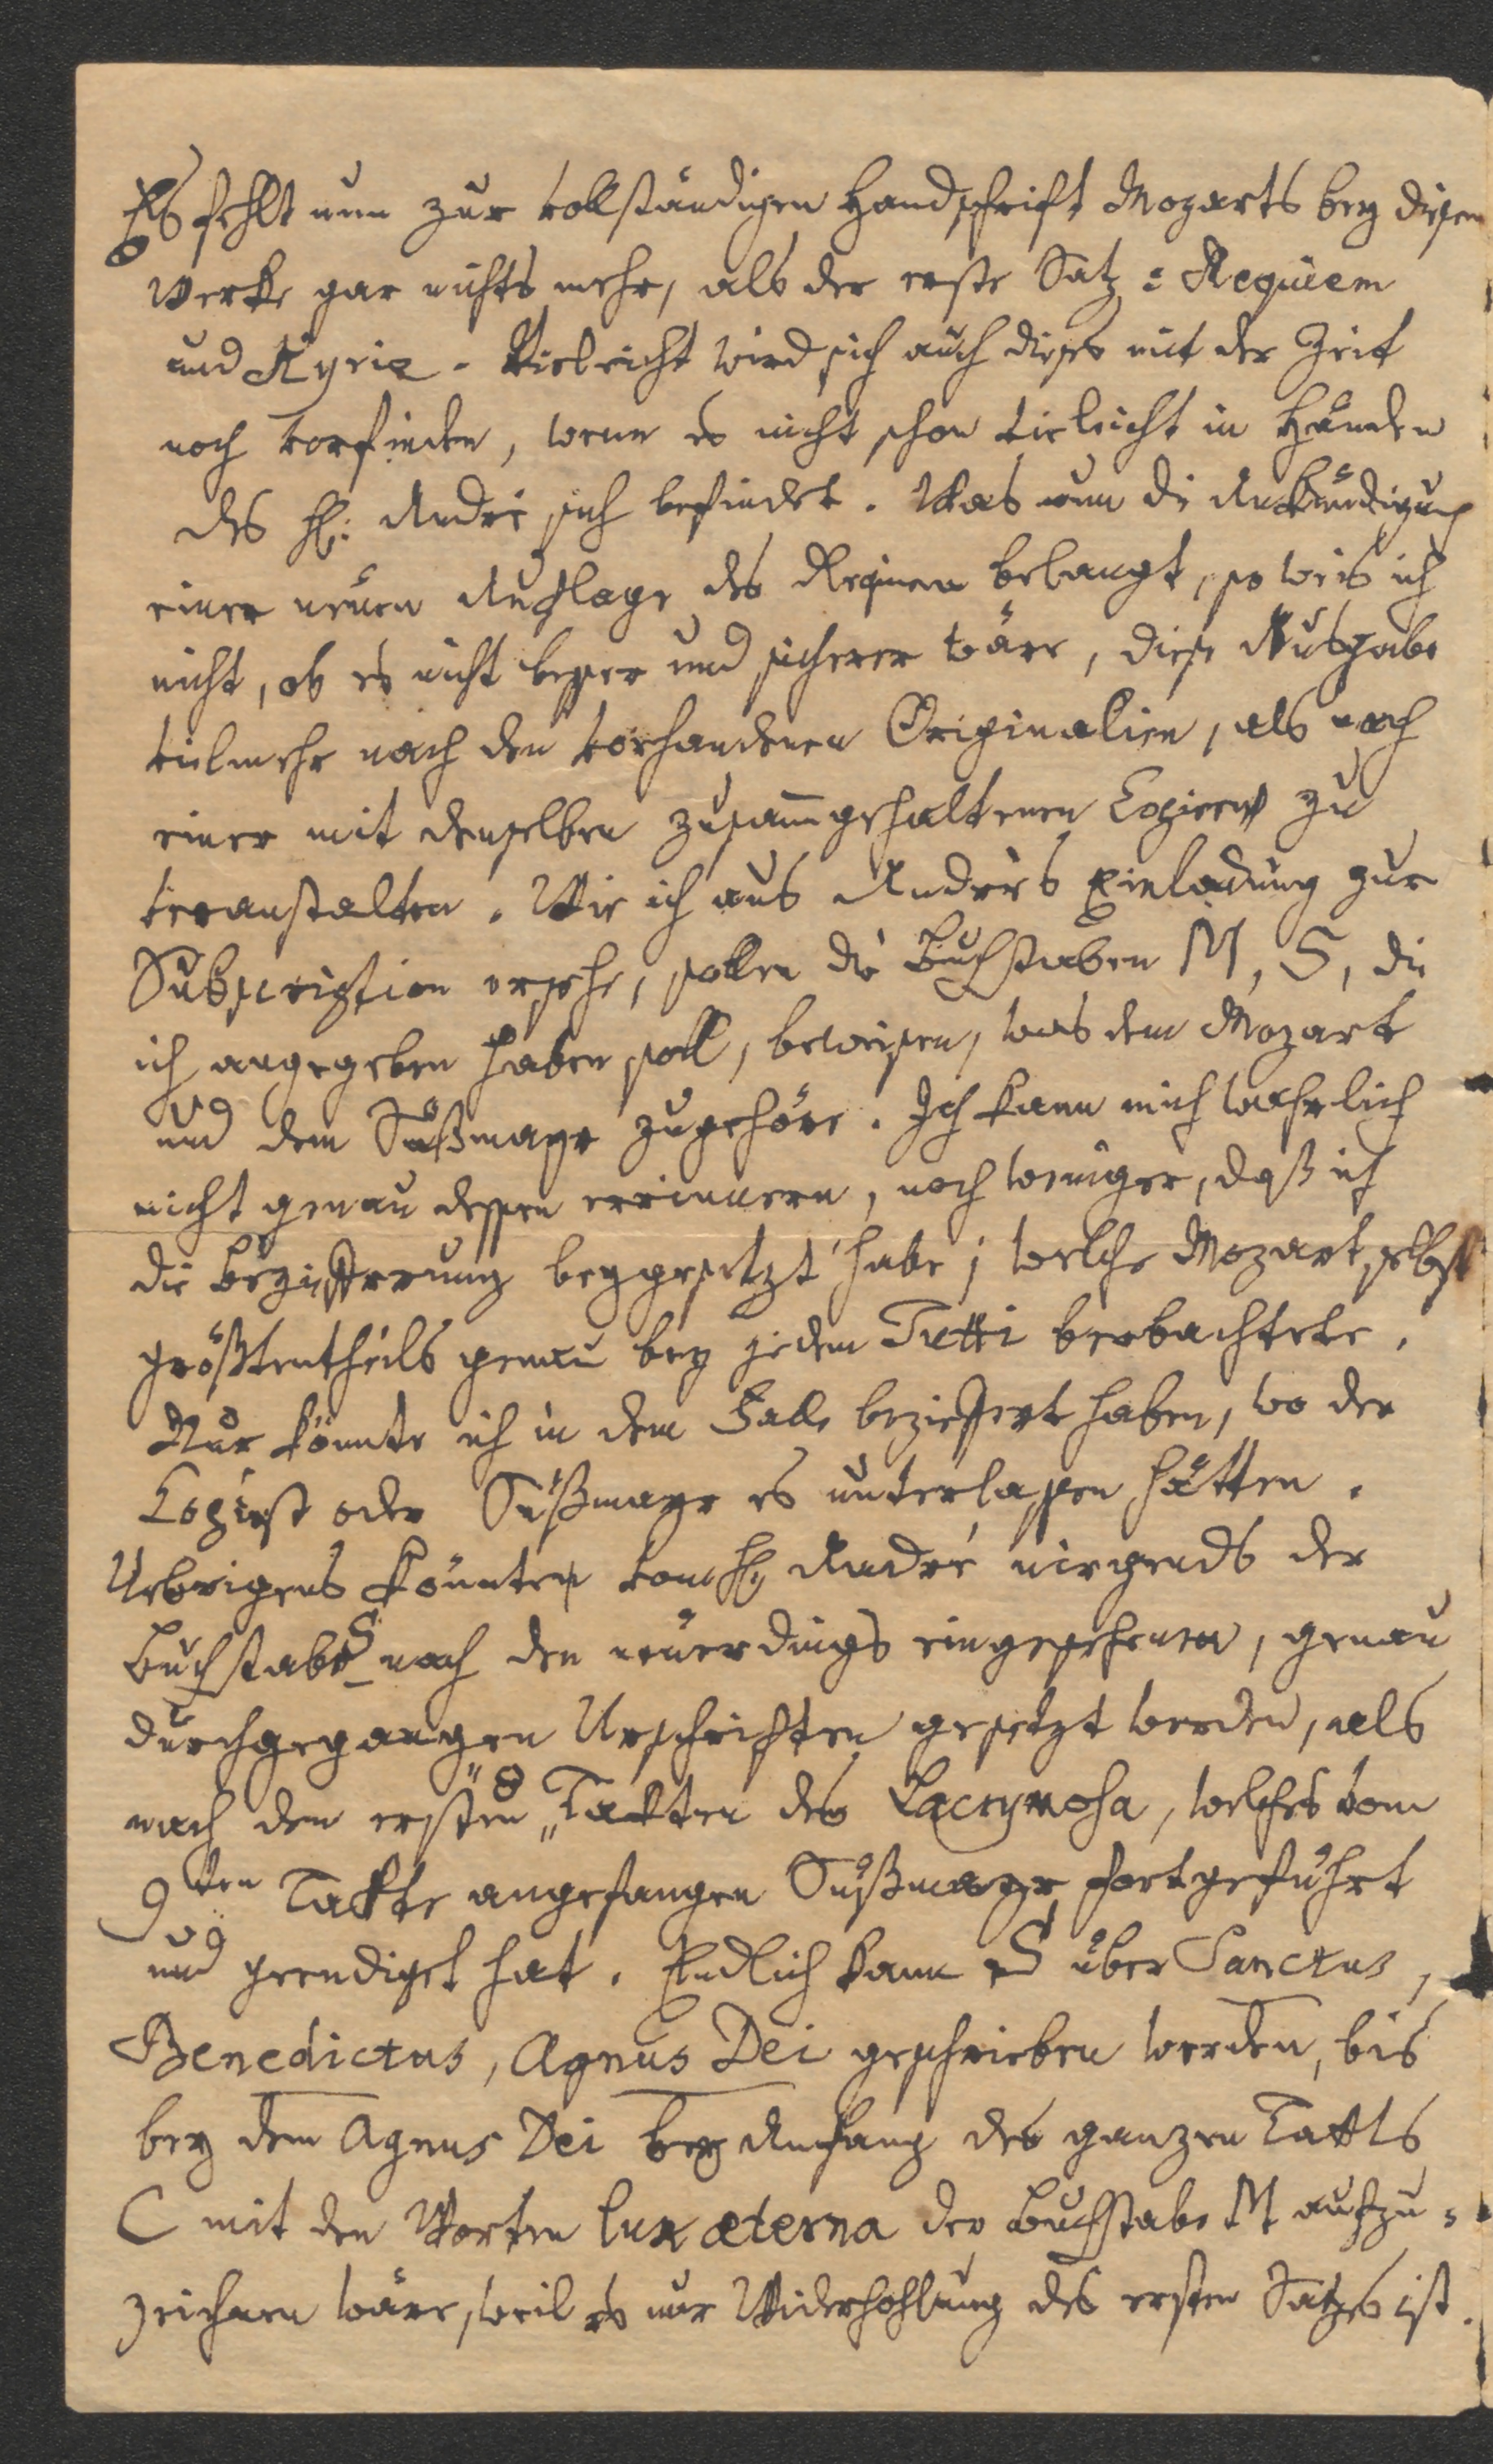 Es fehlt nun zur vollständigen Handschrift Mozarts bey diesem
Werke gar nichts mehr, als der erste Satz = Requiem
und Kyrie. Vieleicht wird sich auch dieses mit der Zeit
noch vorfinden, wenn es nicht schon vieleicht in Händen
des H: André sich befindet. Was nun die Ankündigung
einer neuen Auflage des Requiem belangt, so weis ich
nicht, ob es nicht besser und sicherer wäre, diese Ausgabe
vielmehr nach den vorhandenen Originalien, als nach
einer mit denselben zusam̅gehaltenen Copien zu
veranstalten. Wie ich aus Andrès Einladung zur
Subscription ersehe, sollen die Buchstaben M, S, die
ich angegeben haben soll, beweisen, was dem Mozart
und dem Süßmayr zugehöre. Ich kann mich wahrlich
nicht genau dessen errinnern, noch weniger, daß ich
die Bezifferung beygesetzt habe; welche Mozart selbst
größtentheils genau bey jedem Tutti beobachtete.
Nur könnte ich in dem Falle beziffert haben, wo der
Copist oder Süßmayr es unterlassen hätten.
Uebrigens könnte von H: André nirgends der
Buchstabe S nach den neuerdings eingesehenen, genau
durchgegangen Urschriften gesetzt werden, als
nach den ersten 8 Takten des Lacrymosa, welches vom
9ten Takte angefangen Süßmayr fortgeführt
und geendiget hat. Endlich kann S über Sanctus,
Benedictus, Agnus Dei geschrieben werden, bis
bey dem Agnus Dei bey Anfang des ganzen Takts
C mit den Worten lux æterna der Buchstabe M aufzu=
zeichnen wäre, weil es nur Widerhohlung des ersten Satzes ist.